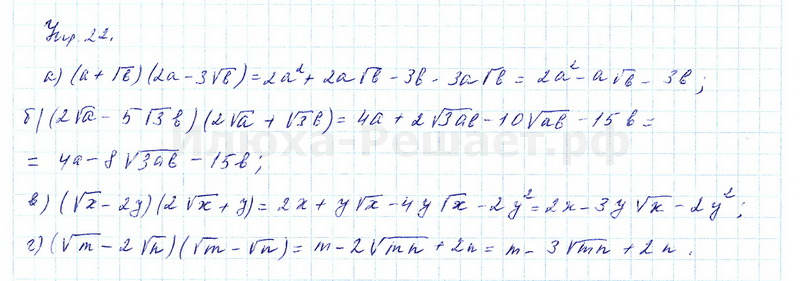 Упр. 22.
а) (a + √b)(2a - 3√b) = 2a² + 2a√b - 3b - 3a√b = 2a² - a√b - 3b;
б) (2√a - 5√3b)(2√a + √3b) = 4a + 2√3ab - 10√ab - 15b =
= 4a - 8√3ab - 15b;
в) (√x - 2y)(2√x + y) = 2x + y√x - 4y√x - 2y² = 2x - 3y√x - 2y²;
г) (√m - 2√n)(√m - √n) = m - 2√mn + 2n = m - 3√mn + 2n.